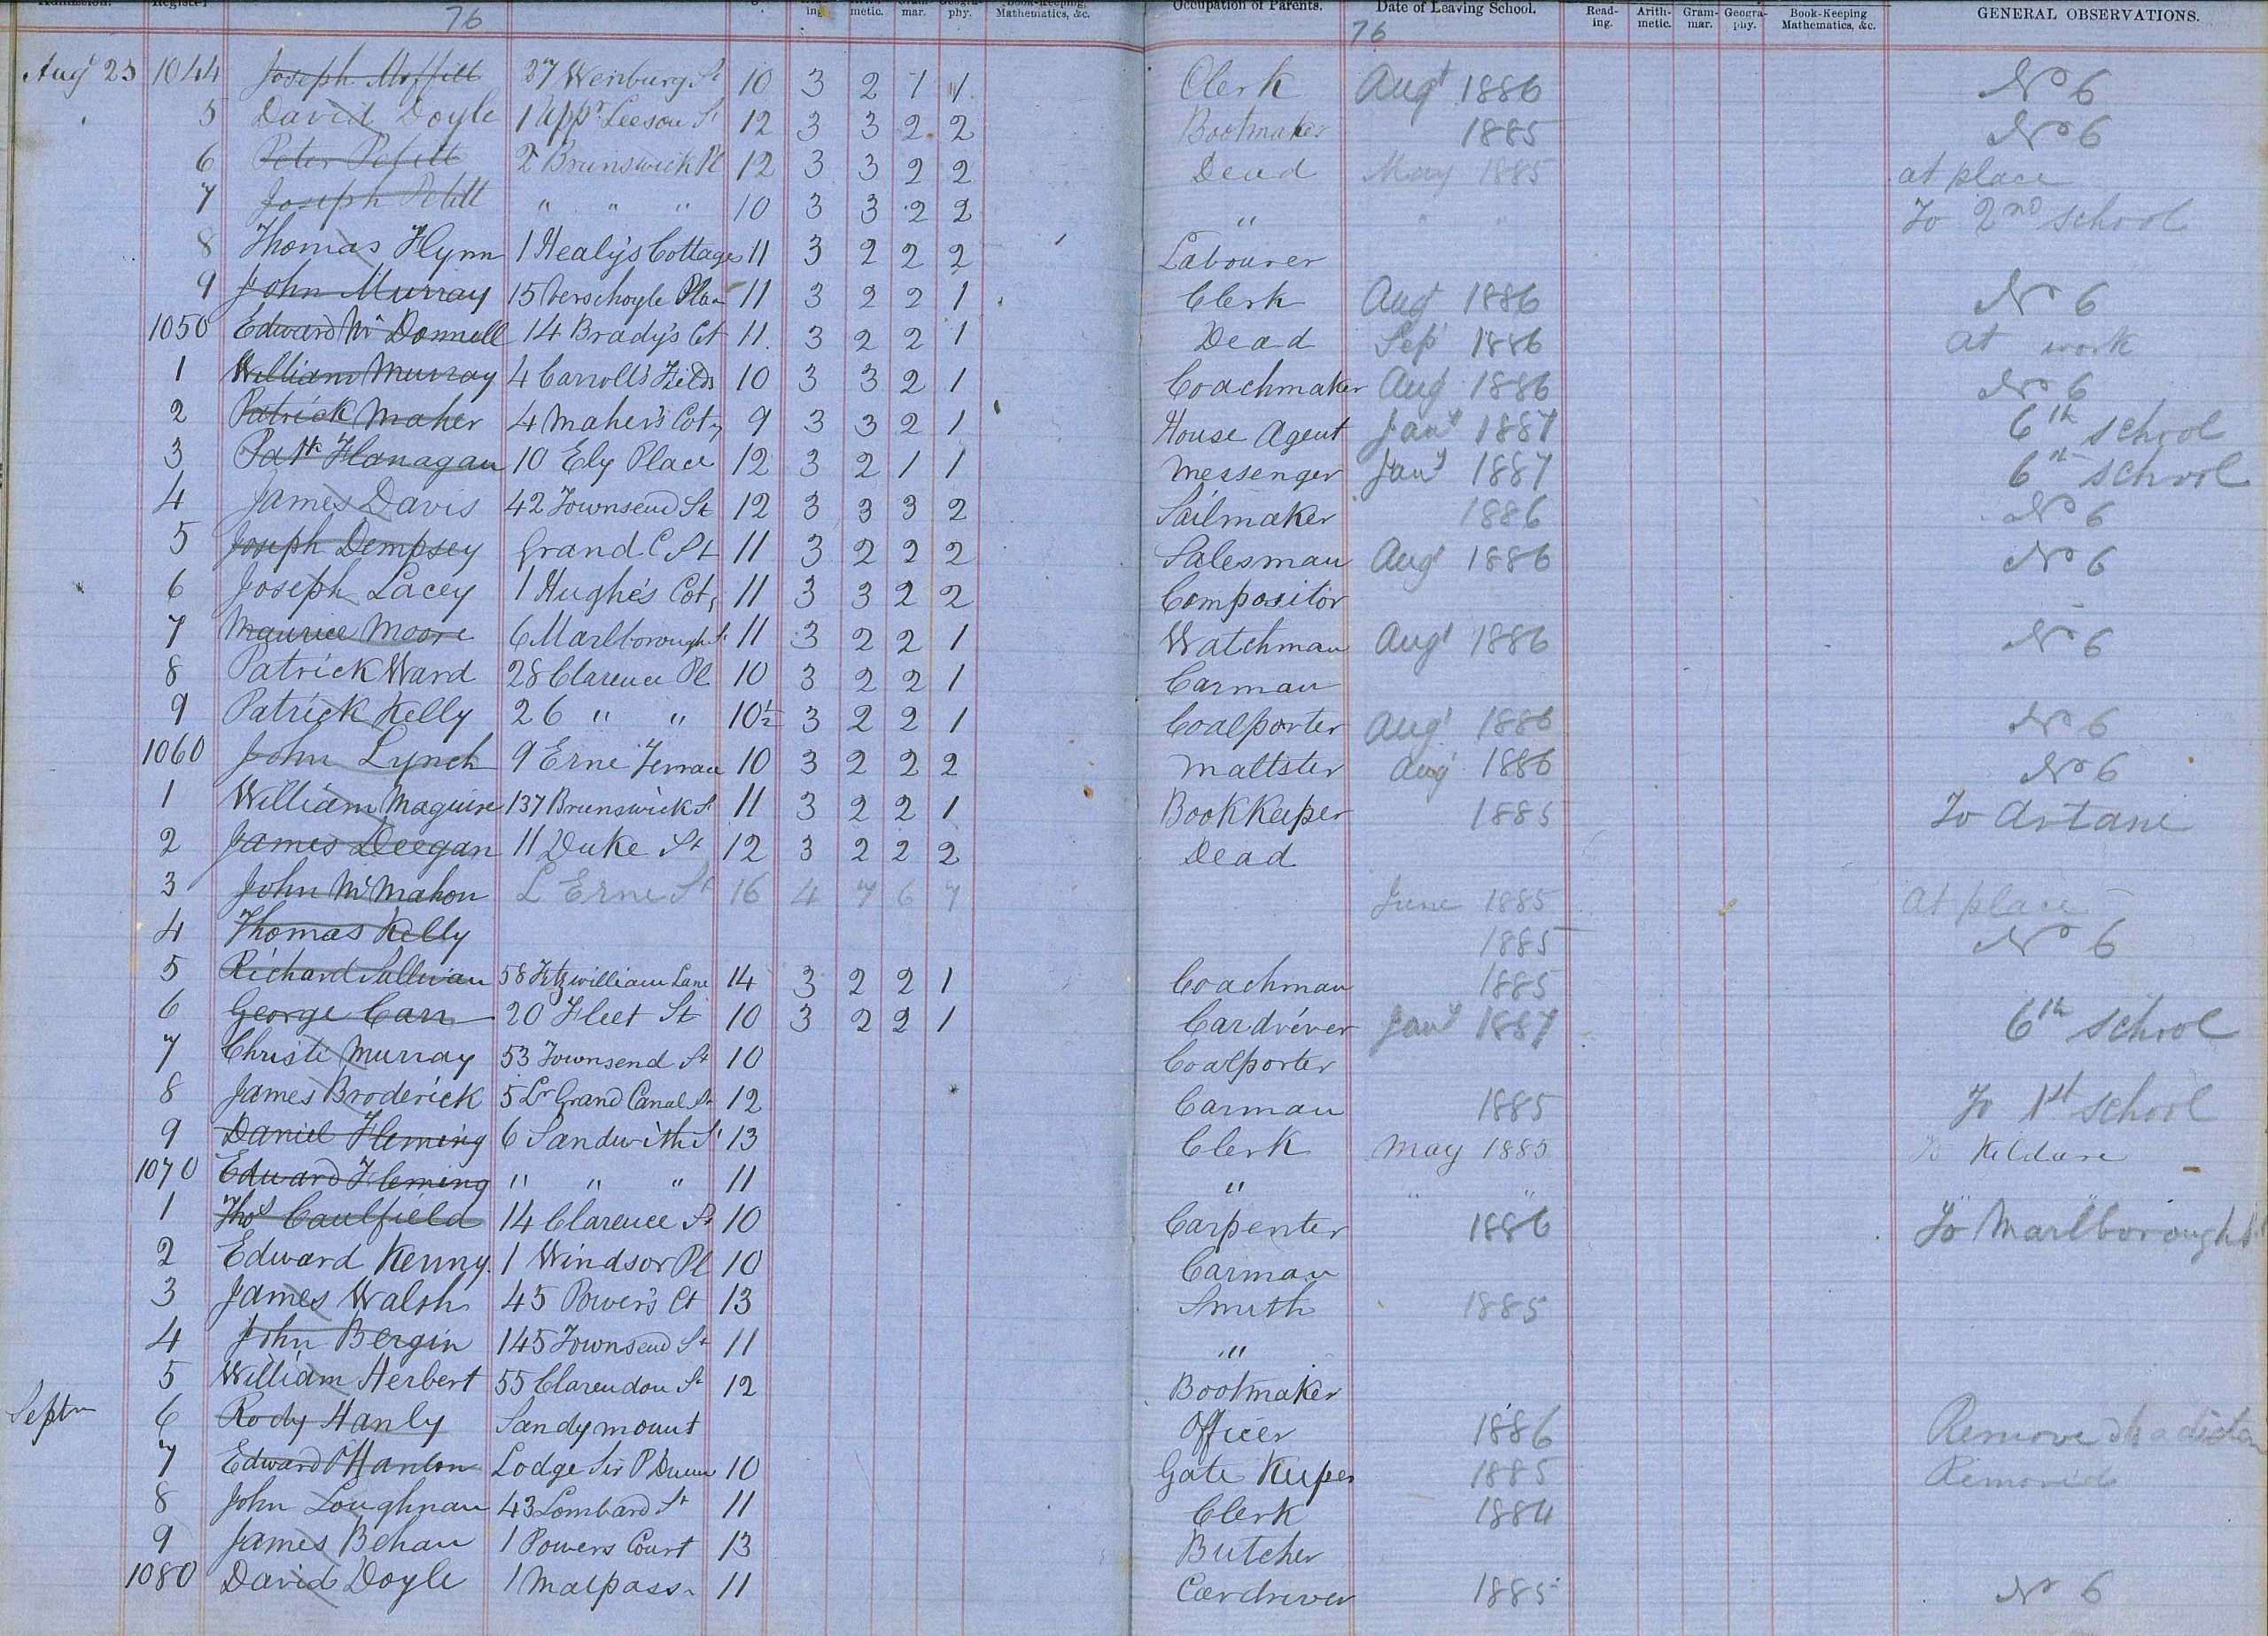 Admission. Register ing. metic. mar. phy. Book-Keeping, Mathematics, &c. Occupation of Parents. Date of Leaving School. Read-ing. Arith-metic. Gram-mar. Geogra-phy. Book-Keeping Mathematics, &c. GENERAL OBSERVATIONS.
76 76
Augt 23 1044 Joseph Moffitt 27 Wenburg St 10 3 2 1 1 Clerk Augt 1886 No 6
5 David Doyle 1 Uppr Leeson St 12 3 3 2 2 Bootmaker 1885 No 6
6 Peter Petitt 2 Brunswick Pl 12 3 3 2 2 Dead May 1885 at place
7 Joseph Petitt " " " 10 3 3 2 2 " " " To 2nd School
8 Thomas Flynn 1 Healy's Cottages 11 3 2 2 2 Labourer
9 John Murray 15 Verschoyle Place 11 3 2 2 1 Clerk Augt 1886 No 6
1050 Edward Mc Donnell 14 Brady's Ct 11 3 2 2 1 Dead Sep 1886 at work
1 William Murray 4 Carroll's Fields 10 3 3 2 1 Coachmaker Aug 1886 No 6
2 Patrick Maher 4 Maher's Cots 9 3 3 2 1 House Agent Jany 1887 6th School
3 Patk Flanagan 10 Ely Place 12 3 2 1 1 Messenger Jany 1887 6th School
4 James Davis 42 Townsend St 12 3 3 3 2 Sailmaker 1886 No 6
5 Joseph Dempsey Grand C St 11 3 2 2 2 Salesman Augt 1886 No 6
6 Joseph Lacey 1 Hughe's Cots 11 3 3 2 2 Compositor
7 Maurice Moore 6 Marlborough St 11 3 2 2 1 Watchman Augt 1886 No 6
8 Patrick Ward 28 Clarence Pl 10 3 2 2 1 Carman
9 Patrick Kelly 26 " " 10½ 3 2 2 1 Coalporter Augt 1886 No 6
1060 John Lynch 9 Erne Terrace 10 3 2 2 2 Maltster Aug 1886 No 6
1 William Maguire 137 Brunswick St 11 3 2 2 1 BookKeeper 1885 To Artane
2 James Deegan 11 Duke St 12 3 2 2 2 Dead
3 John McMahon L Erne St 16 4 7 6 7 June 1885 At place
4 Thomas Kelly 1885 No 6
5 Richard Sullivan 58 Fitzwilliam Lane 14 3 2 2 1 Coachman 1885
6 George Carr 20 Fleet St 10 3 2 2 1 Cardriver Jany 1887 6th School
7 Christr Murray 53 Townsend St 10 Coalporter
8 James Broderick 5 Lr Grand Canal St 12 Carman 1885 To 1st School
9 Daniel Fleming 6 Sandwith St 13 Clerk May 1885 To Kildare
1070 Edward Fleming " " " 11 " " " "
1 Thos Caulfield 14 Clarence St 10 Carpenter 1886 To Marlborough St
2 Edward Kenny 1 Windsor Pl 10 Carman
3 James Walsh 45 Power's Ct 13 Smith 1885
4 John Bergin 145 Townsend St 11 "
5 William Herbert 55 Clarendon St 12 Bootmaker
Septr 6 Rody Hanly Sandymount Officer 1886 Removed
7 Edward O'Hanlon Lodge Sir P Dunn 10 Gate Keeper 1885 Removed
8 John Loughnan 43 Lombard St 11 Clerk 1884
9 James Behan 1 Powers Court 13 Butcher
1080 David Doyle 1 Malpass 11 Cardriver 1885 No 6